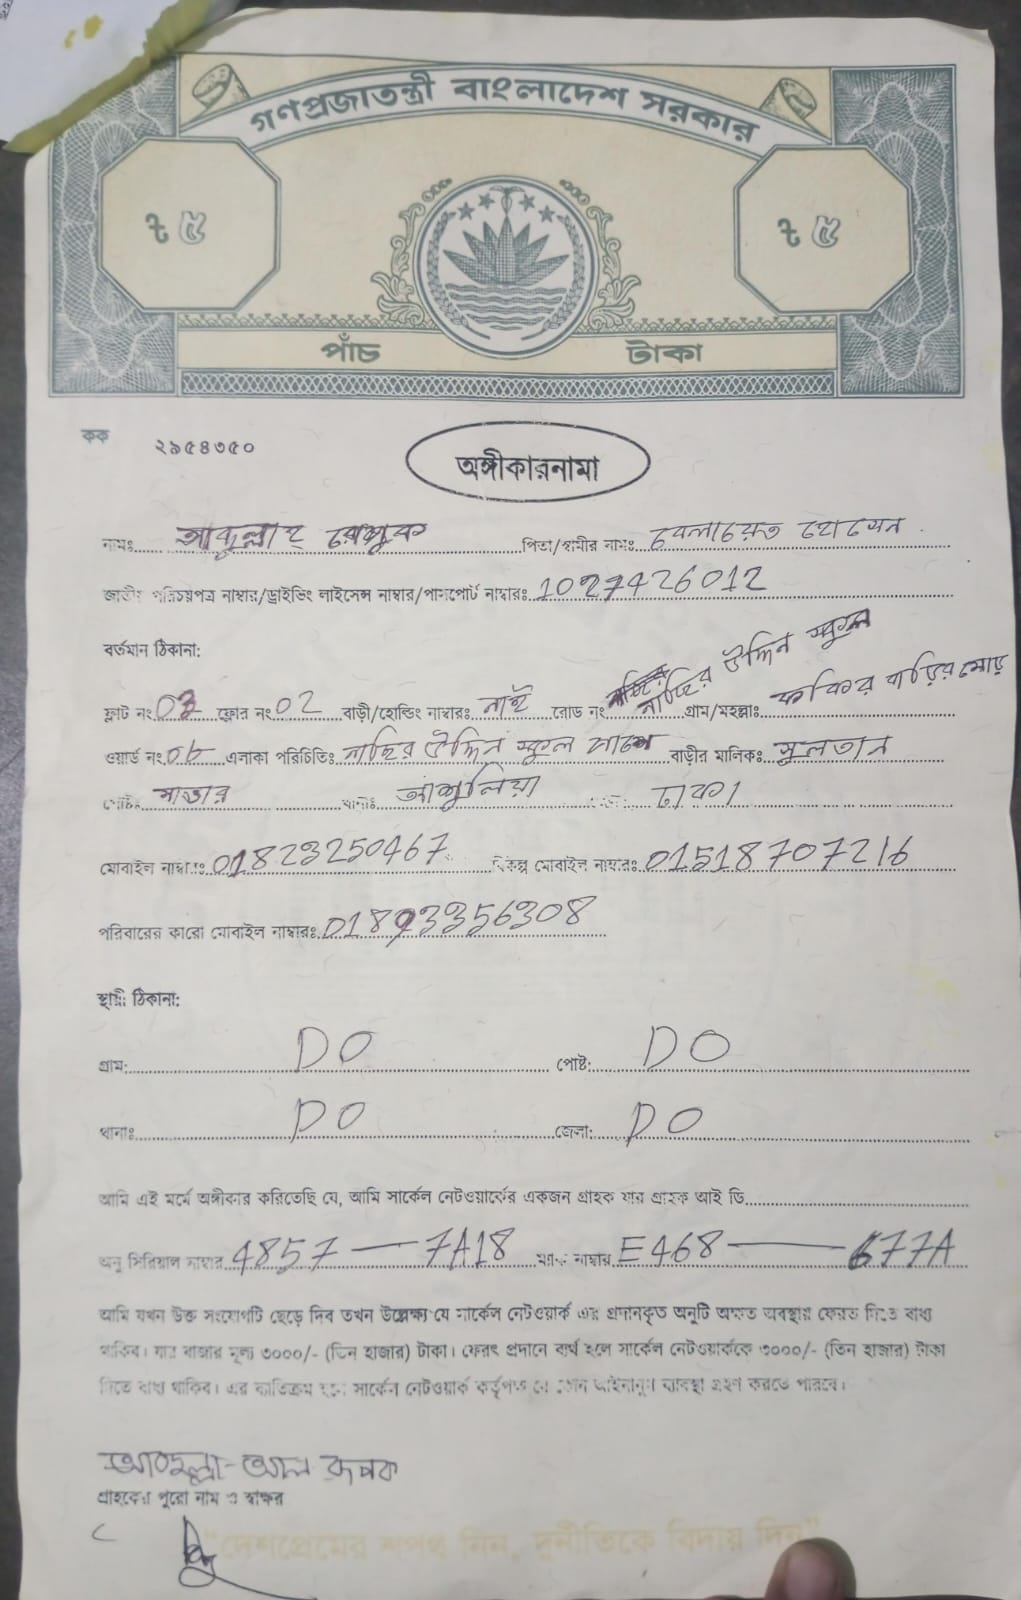 গণপ্রজাতন্ত্রী বাংলাদেশ সরকার
৳ ৫ ৳ ৫
পাঁচ টাকা
কক ২৯৫৪৩৫০
অঙ্গীকারনামা
নামঃ আব্দুল্লাহ পিতা/স্বামীর নামঃ বেলায়েত হোসেন
জাতীয় পরিচয়পত্র নাম্বার/ড্রাইভিং লাইসেন্স নাম্বার/পাসপোর্ট নাম্বারঃ 1027426012
বর্তমান ঠিকানা:
ফ্লাট নং ফ্লোর নং 02 বাড়ী/হোল্ডিং নাম্বারঃ নাই রোড নং নাছির উদ্দিন স্কুল গ্রাম/মহল্লাঃ ফকির বাড়ির মোড়
ওয়ার্ড নং এলাকা পরিচিতিঃ নাছির উদ্দিন স্কুল পাশে বাড়ীর মালিকঃ সুলতান
পোষ্টঃ সাভার থানাঃ আশুলিয়া ঢাকা
মোবাইল নাম্বারঃ 01823250467 বিকল্প মোবাইল নাম্বারঃ 01518707216
পরিবারের কারো মোবাইল নাম্বারঃ
স্থায়ী ঠিকানা:
গ্রাম: DO পোষ্ট: DO
থানাঃ DO জেলা: DO
আমি এই মর্মে অঙ্গীকার করিতেছি যে, আমি সার্কেল নেটওয়ার্কের একজন গ্রাহক যার গ্রাহক আই ডি
অনু সিরিয়াল নাম্বার 4857 — 7A18 ম্যাক নাম্বার E468 — 677A
আমি যখন উক্ত সংযোগটি ছেড়ে দিব তখন উল্লেক্ষ্য যে সার্কেল নেটওয়ার্ক এর প্রদানকৃত অনুটি অক্ষত অবস্থায় ফেরত দিতে বাধ্য
থাকিব। যার বাজার মূল্য ৩০০০/- (তিন হাজার) টাকা। ফেরৎ প্রদানে ব্যর্থ হলে সার্কেল নেটওয়ার্ককে ৩০০০/- (তিন হাজার) টাকা
দিতে বাধ্য থাকিব। এর ব্যতিক্রম হলে সার্কেল নেটওয়ার্ক কর্তৃপক্ষ যে কোন আইনানুগ ব্যবস্থা গ্রহণ করতে পারবে।
আবদুল্লা-আল রূপক
গ্রাহকের পুরো নাম ও স্বাক্ষর
"দেশপ্রেমের শপথ নিন, দুর্নীতিকে বিদায় দিন"